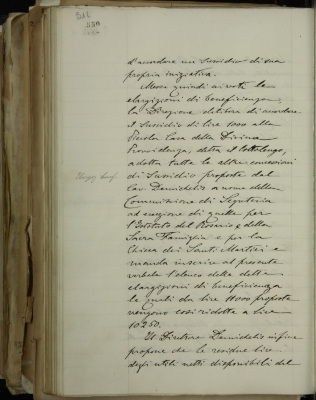 d'accordare un sussidio di sua
propria iniziativa.
Messe quindi ai voti le
elargizioni di beneficienza
la Direzione delibera di accordare
il sussidio di lire 1000 alla
Piccola Casa della Divina
Provvidenza, detta il Cottolengo,
adotta tutte le altre concessioni
di sussidio proposte dal
Cav. Damichelis a nome della
Commissione di Segreteria
ad eccezione di quelle per
l'Istituto del Rosario e della
Sacra Famiglia e per la
Chiesa dei Santi Martiri e
manda inscrivere al presente
verbale l'elenco delle dette
elargizioni di beneficienza
le quali da lire 11000 proposte
vengono così ridotte a lire
10250.
Il Direttore Damichelis infine
propone che le residue lire
degli utili netti disponibili del